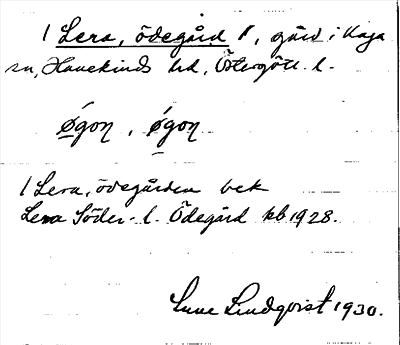 1 Lera, ödegård 1, gård i Kaga
sn, Hanekinds hd, Östergötl. l.
øgon, øgon
1 Lera, ödegården bek
Lera Söder- l. Ödegård kb 1928.
Sune Lindqvist 1930.